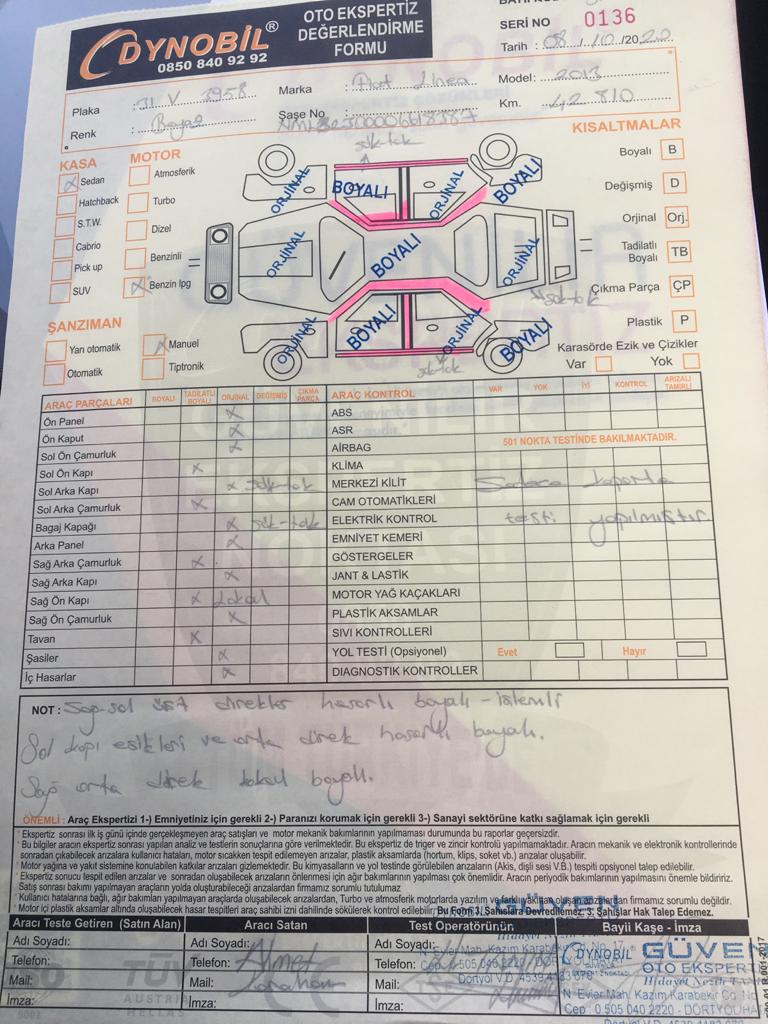 DYNOBİL®
0850 840 92 92
OTO EKSPERTİZ
DEĞERLENDİRME
FORMU
SERİ NO 0136
Tarih : 08 / 10 / 2020
Plaka : 31 V 3958
Marka : Fiat Linea
Model: 2013
Renk : Beyaz
Şase No
Km. 42 810
KASA
Sedan
Hatchback
S.T.W.
Cabrio
Pick up
SUV
MOTOR
Atmosferik
Turbo
Dizel
Benzinli
Benzin lpg
ŞANZIMAN
Yarı otomatik
Otomatik
Manuel
Tiptronik
sök-tak
ORJİNAL
BOYALI
ORJİNAL
BOYALI
ORJİNAL
BOYALI
ORJİNAL
sök-tak
ORJİNAL
BOYALI
ORJİNAL
BOYALI
sök-tak
KISALTMALAR
Boyalı B
Değişmiş D
Orjinal Orj.
Tadilatlı
Boyalı TB
Çıkma Parça ÇP
Plastik P
Karasörde Ezik ve Çizikler
Var Yok
ARAÇ PARÇALARI BOYALI TADİLATLI BOYALI ORJİNAL DEĞİŞMİŞ ÇIKMA PARÇA
Ön Panel X
Ön Kaput X
Sol Ön Çamurluk X
Sol Ön Kapı X
Sol Arka Kapı X sök-tak
Sol Arka Çamurluk X
Bagaj Kapağı X sök-tak
Arka Panel X
Sağ Arka Çamurluk X
Sağ Arka Kapı X
Sağ Ön Kapı X Lokal
Sağ Ön Çamurluk X
Tavan X
Şasiler X
İç Hasarlar X
ARAÇ KONTROL VAR YOK İYİ KONTROL ARIZALI TAMİRLİ
ABS
ASR
AİRBAG
501 NOKTA TESTİNDE BAKILMAKTADIR.
KLİMA
MERKEZİ KİLİT
Sadece kaporta
CAM OTOMATİKLERİ
ELEKTRİK KONTROL
testi yapılmıştır
EMNİYET KEMERİ
GÖSTERGELER
JANT & LASTİK
MOTOR YAĞ KAÇAKLARI
PLASTİK AKSAMLAR
SIVI KONTROLLERİ
YOL TESTİ (Opsiyonel) Evet Hayır
DIAGNOSTIK KONTROLLER
NOT : Sağ-sol üst direkler hasarlı boyalı - işlemli
Sol kapı eşikleri ve orta direk hasarlı boyalı.
Sağ orta direk lokal boyalı.
ÖNEMLİ : Araç Ekspertizi 1-) Emniyetiniz için gerekli 2-) Paranızı korumak için gerekli 3-) Sanayi sektörüne katkı sağlamak için gerekli
* Ekspertiz sonrası ilk iş günü içinde gerçekleşmeyen araç satışları ve motor mekanik bakımlarının yapılmaması durumunda bu raporlar geçersizdir.
* Bu bilgiler araçın ekspertiz sonrası yapılan analiz ve testlerin sonuçlarına göre verilmektedir. Bu ekspertiz de triger ve zincir kontrolü yapılmamaktadır. Aracın mekanik ve elektronik kontrollerinde
sonradan çıkabilecek arızalara kullanıcı hataları, motor sıcakken tespit edilemeyen arızalar, plastik aksamlarda (hortum, klips, soket vb.) arızalar oluşabilir.
* Motor yağına ve yakıt sistemine konulabilen katkılar arızaları gizlemektedir. Bu kimyasalların ve yol testinde görülebilen arızaların (Akis, dişli sesi V.B.) tespiti opsiyonel talep edilebilir.
* Ekspertiz sonucu tespit edilen arızalar ve sonradan oluşabilecek arızaların önlenmesi için ağır bakımlarının yapılması çok önemlidir. Aracın periyodik bakımlarının yapılmasını önemle bildiririz.
Satış sonrası bakımı yapılmayan araçların yolda oluşturabileceği arızalardan firmamız sorumlu tutulamaz
* Kullanıcı hatalarına bağlı, ağır bakımları yapılmayan araçlarda oluşabilecek arızalardan, Turbo ve atmosferik motorlarda yazılım ve firmamız sorumlu değildir.
* Motor içi plastik aksamlar altında oluşabilecek hasar tespitleri araç sahibi izni dahilinde sökülerek kontrol edilebilir. Bu Form 3. Şahıslara Devredilemez. 3. Şahıslar Hak Talep Edemez.
Aracı Teste Getiren (Satın Alan) Aracı Satan Test Operatörünün Bayii Kaşe - İmza
Adı Soyadı: Adı Soyadı: Adı Soyadı:
Telefon: Telefon: Ahmet Telefon:
Mail: Mail: Mail:
İmza: İmza: İmza:
GÜVEN
DYNOBİL GÜVEN
OTO EKSPER
Hidayet Nezih
N Evler Mah. Kazım Karabekir
Cep : 0 505 040 2220 - DÖRTYOL/HA